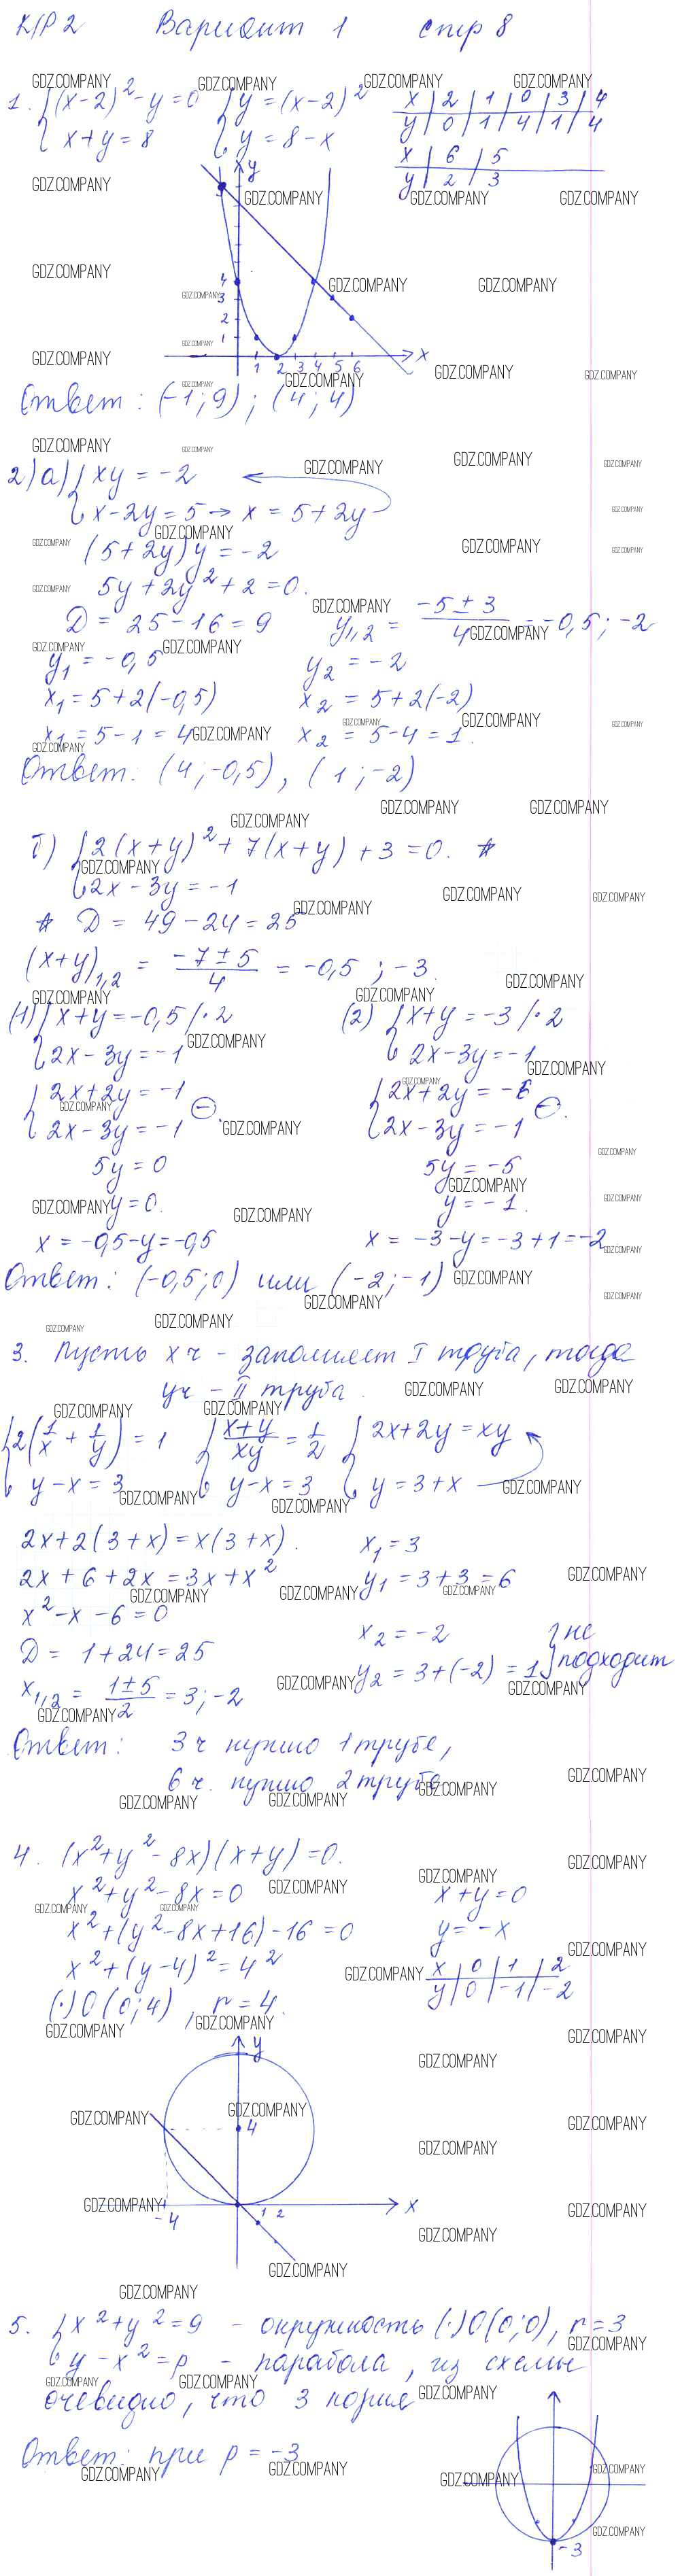 К/Р 2 Вариант 1 стр 8
1. { (x-2)² - y = 0 { y = (x-2)² x | 2 | 1 | 0 | 3 | 4
y | 0 | 1 | 4 | 1 | 4
x + y = 8 y = 8 - x
x | 6 | 5
y | 2 | 3
y
9
4
3
2
1
1 2 3 4 5 6 x
Ответ: (-1; 9); (4; 4)
2) а) { xy = -2
x - 2y = 5 → x = 5 + 2y
(5 + 2y) y = -2
5y + 2y² + 2 = 0.
D = 25 - 16 = 9 y₁,₂ = (-5 ± 3)/4 = -0,5; -2
y₁ = -0,5 y₂ = -2
x₁ = 5 + 2(-0,5) x₂ = 5 + 2(-2)
x₁ = 5 - 1 = 4 x₂ = 5 - 4 = 1.
Ответ: (4; -0,5), (1; -2)
б) { 2(x+y)² + 7(x+y) + 3 = 0. *
2x - 3y = -1
* D = 49 - 24 = 25
(x+y)₁,₂ = (-7 ± 5)/4 = -0,5; -3.
(1) { x + y = -0,5 / · 2 (2) { x + y = -3 / · 2
2x - 3y = -1 2x - 3y = -1
{ 2x + 2y = -1 ⊖ { 2x + 2y = -6 ⊖.
2x - 3y = -1 2x - 3y = -1
5y = 0 5y = -5
y = 0. y = -1.
x = -0,5 - y = -0,5 x = -3 - y = -3 + 1 = -2
Ответ: (-0,5; 0) или (-2; -1)
3. Пусть x ч - заполняет I труба, тогда
y ч - II труба.
{ 2(1/x + 1/y) = 1 { (x+y)/xy = 1/2 { 2x + 2y = xy
y - x = 3 y - x = 3 y = 3 + x
2x + 2(3 + x) = x(3 + x). x₁ = 3
2x + 6 + 2x = 3x + x² y₁ = 3 + 3 = 6
x² - x - 6 = 0
x₂ = -2 } не
D = 1 + 24 = 25
y₂ = 3 + (-2) = 1 подходит
x₁,₂ = (1 ± 5)/2 = 3; -2
Ответ: 3 ч нужно 1 трубе,
6 ч. нужно 2 трубе
4. (x² + y² - 8x)(x + y) = 0.
x² + y² - 8x = 0 x + y = 0
x² + (y² - 8x + 16) - 16 = 0 y = -x
x² + (y - 4)² = 4² x | 0 | 1 | 2
y | 0 | -1 | -2
(·) O (0; 4), r = 4.
y
4
-4 1 2 x
5. { x² + y² = 9 - окружность (·) O(0; 0), r = 3
y - x² = p - парабола, из схемы
очевидно, что 3 корня
Ответ: при p = -3
-3
GDZ.COMPANY